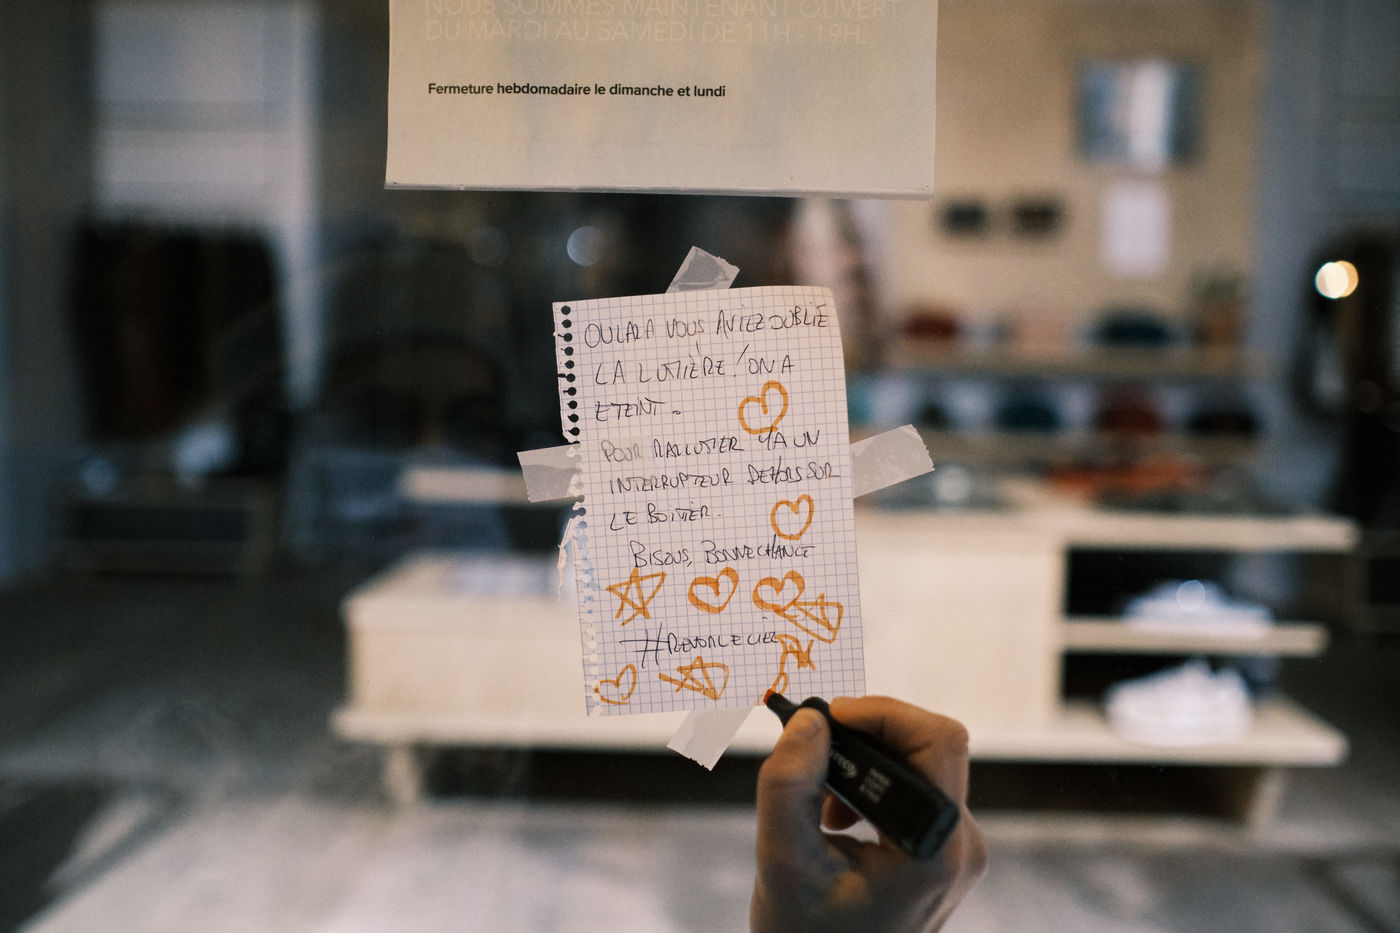 NOUS SOMMES MAINTENANT OUVERT
DU MARDI AU SAMEDI DE 11H - 19H.
Fermeture hebdomadaire le dimanche et lundi
OULALA VOUS AVIEZ OUBLIÉ
LA LUMIÈRE ! ON A
ETEINT.
POUR RALLUMER Y A UN
INTERRUPTEUR DEHORS SUR
LE BOITIER.
BISOUS, BONNE CHANCE